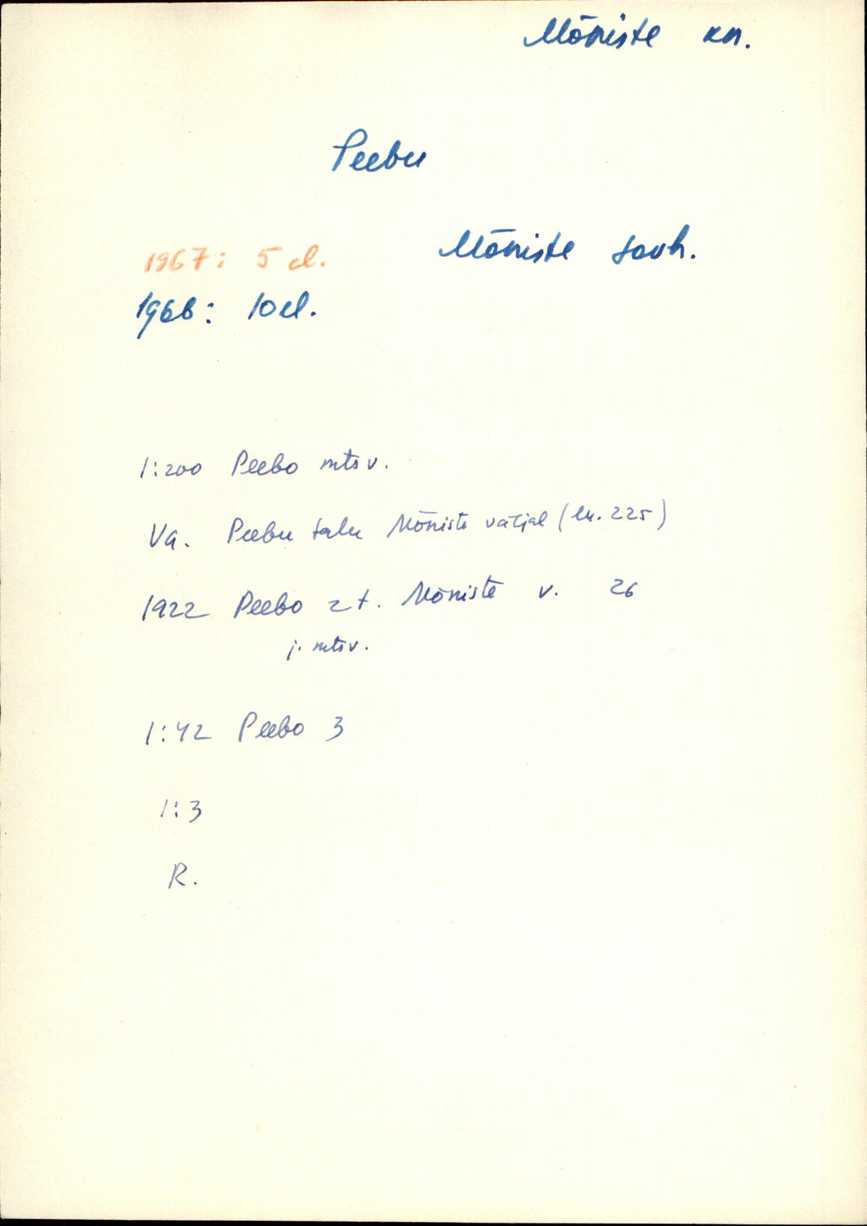 Mõniste kn.
Peebu
1967: 5 el. Mõniste sovh.
1966: 10 el.
1:200 Peebo mtsv.
Va. Peebu talu Mõniste väljal (lk. 225)
1922 Peebo zt. Mõniste v. 26
j. mtsv.
1:42 Peebo 3
1:3
R.